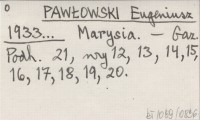 PAWŁOWSKI Eugeniusz
1933... Marysia. — Gaz.
Podh. 21, nry 12, 13, 14, 15,
16, 17, 18, 19, 20.